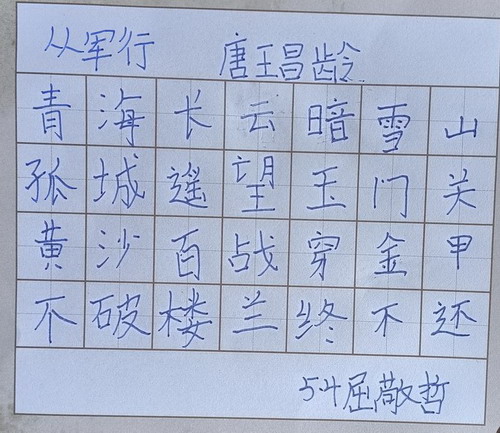 从军行 唐王昌龄
青海长云暗雪山
孤城遥望玉门关
黄沙百战穿金甲
不破楼兰终不还
5.4屈敬哲